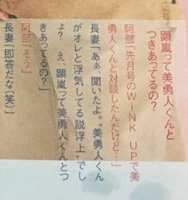 顕嵐って美勇人くんと
つきあってるの?
阿部「先月号のWiNK UPで美
勇人くんと対談したんだけど…」
長妻「あぁ、聞いたよ。“美勇人くん
がオレと浮気してる説浮上”でし
ょ? え、顕嵐って美勇人くんとつ
きあってるの?」
阿部「そう」
長妻「即答だな（笑）」